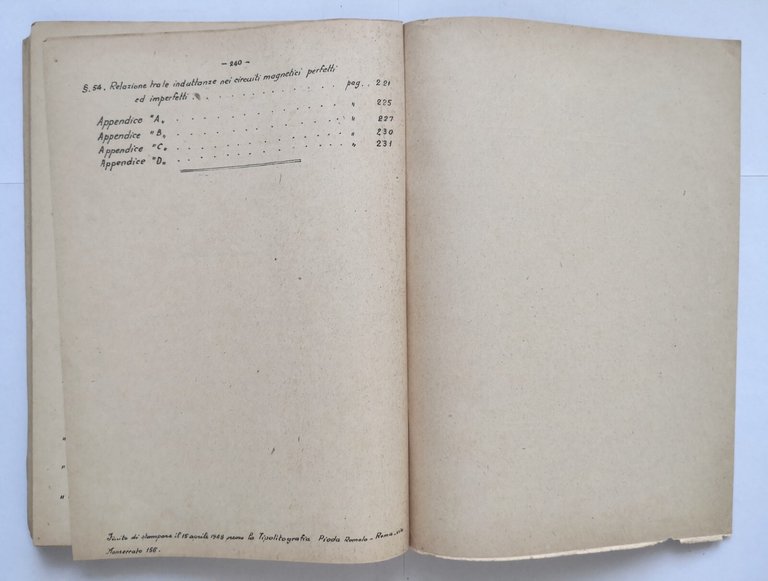 - 240 -
§. 54. Relazione tra le induttanze nei circuiti magnetici perfetti
ed imperfetti . . . . . . . . . . . pag. 221
Appendice "A" . . . . . . . . . . . . " 225
Appendice "B" . . . . . . . . . . . . " 227
Appendice "C" . . . . . . . . . . . . " 230
Appendice "D" . . . . . . . . . . . . " 231
Finito di stampare il 15 aprile 1945 presso la Tipolitografia Pioda Romolo - Roma
Monserrato 156.